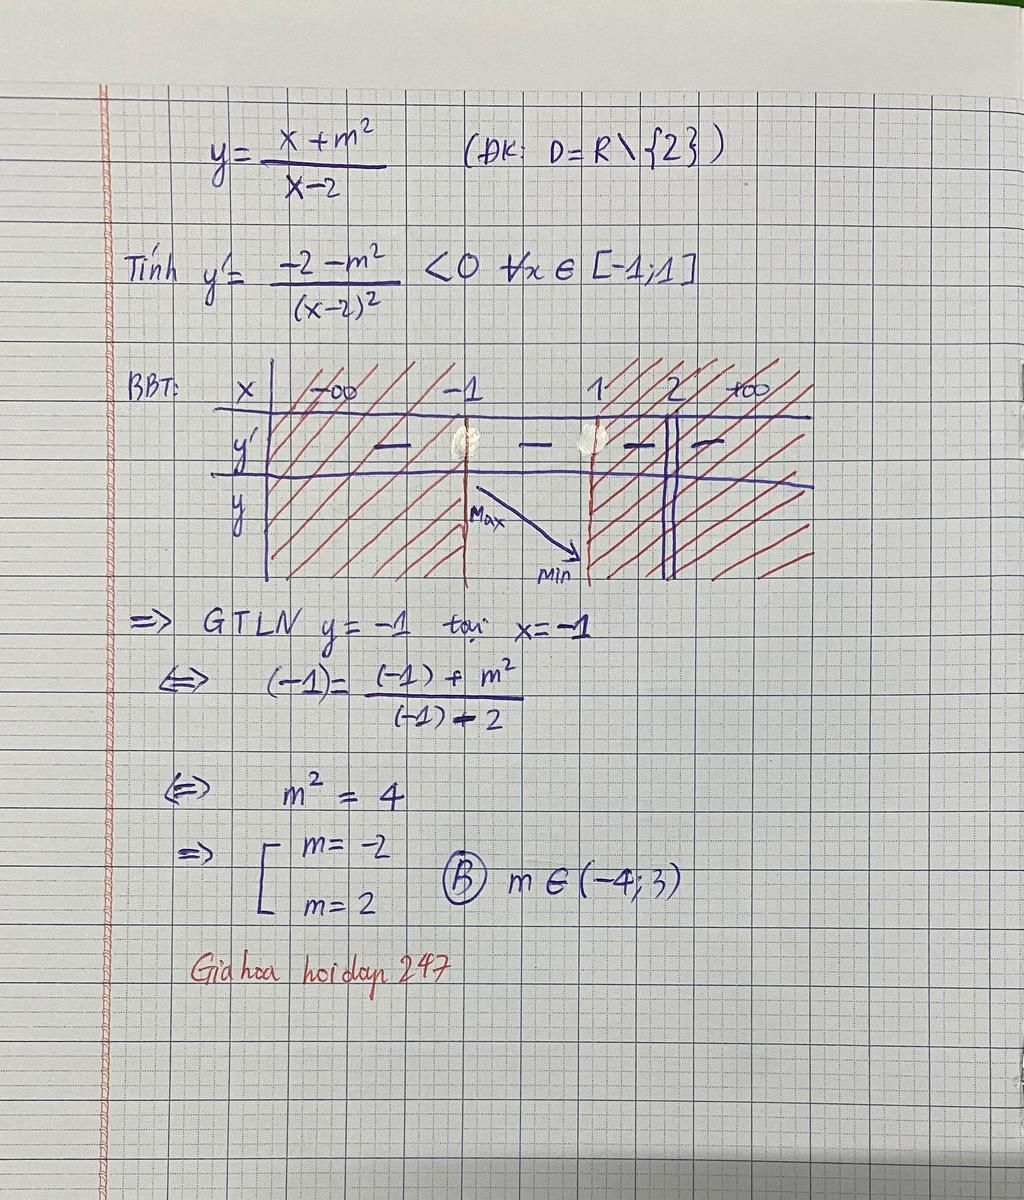 y = (x + m²)/(x - 2) (ĐK: D = R \ {2})
Tính y' = (-2 - m²)/(x - 2)² < 0 ∀x ∈ [-1; 1]
BBT: x -∞ -1 1 2 +∞
y' - - - -
y Max Min
=> GTLN y = -1 tại x = -1
<=> (-1) = ((-1) + m²)/((-1) - 2)
<=> m² = 4
=> [ m = -2
m = 2
Ⓑ m ∈ (-4; 3)
Gia hoa hoidap 247